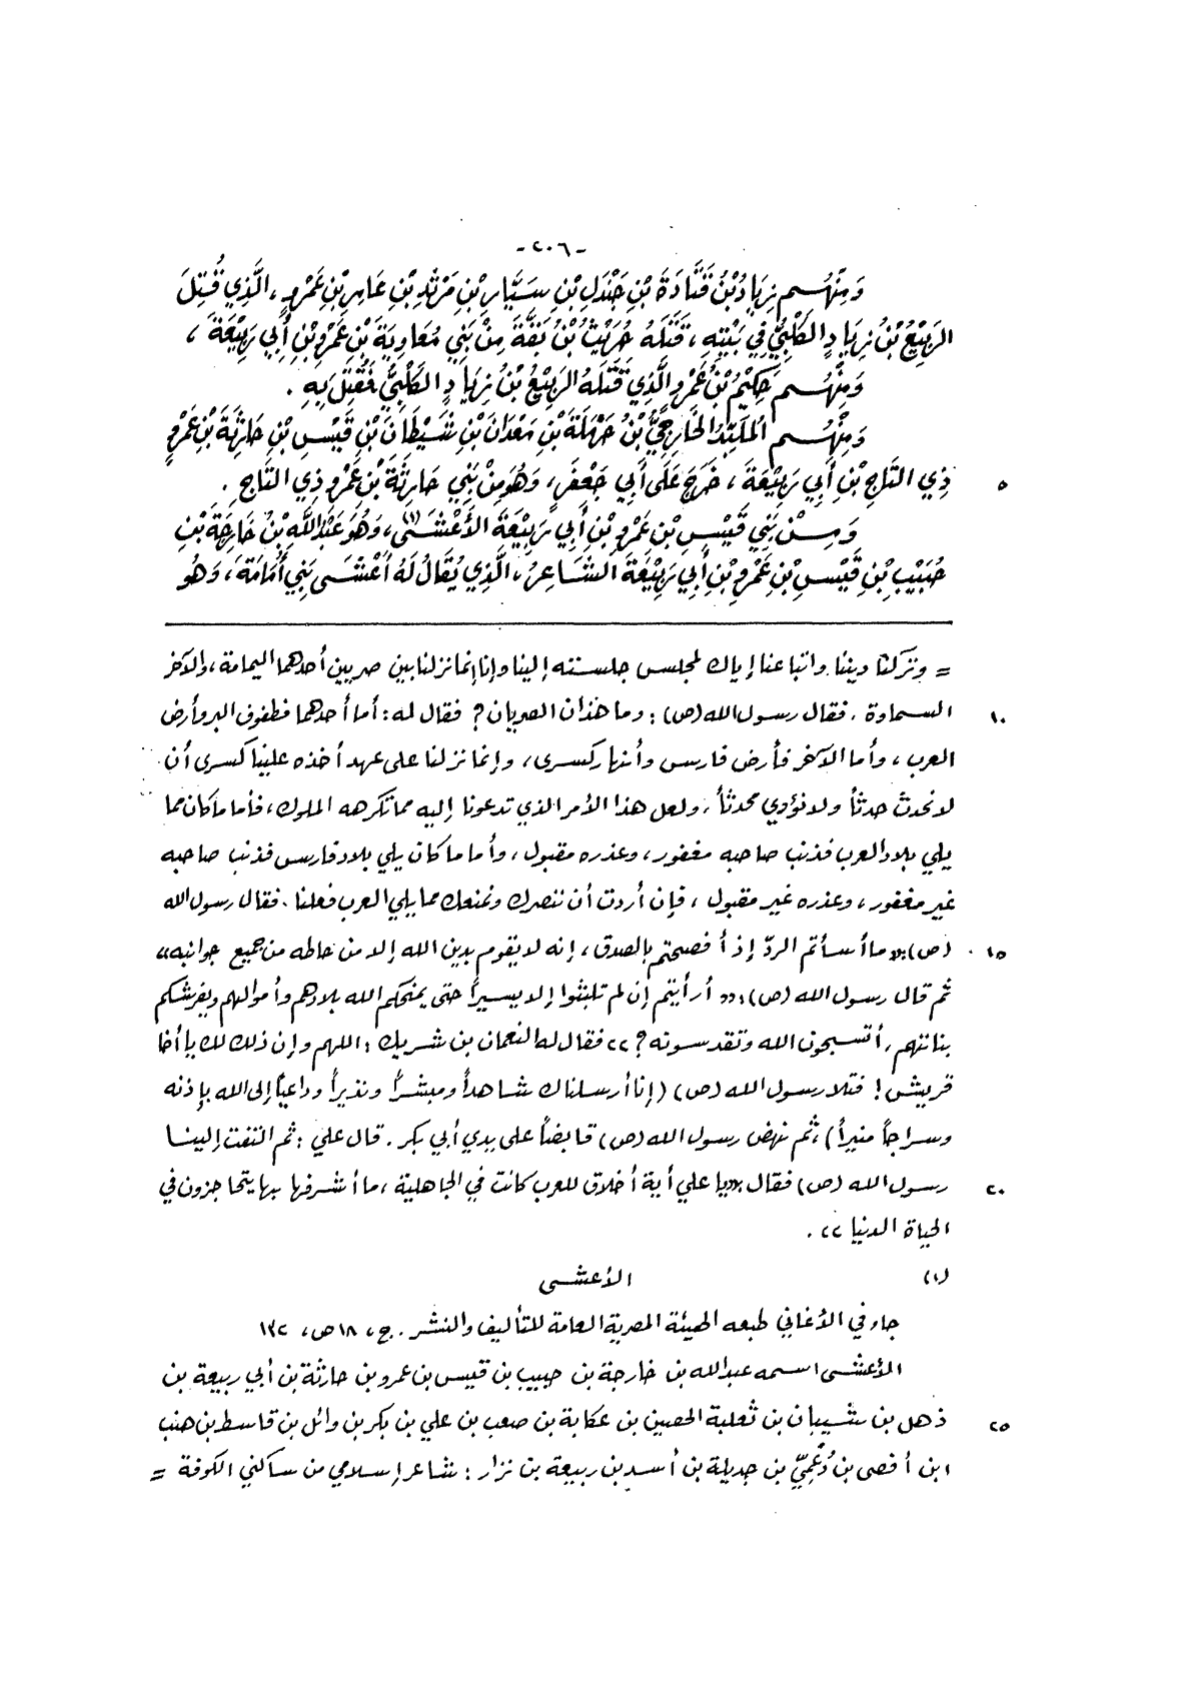 -٢٠٦-
وَمِنْهُم زِيَادُ بْنُ قَتَادَةَ بْنِ جَنْدَلِ بْنِ سَيَّارِ بْنِ مَرْثَدِ بْنِ عَامِرِ بْنِ عَمْرٍو ، الَّذِي قُتِلَ
الرَبِيْعُ بْنُ زِيَادٍ الكَلْبِيُّ فِي بَيْتِهِ ، قَتَلَهُ حُرَيْثُ بْنُ نَفَّةَ مِنْ بَنِي مُعَاوِيَةَ بْنِ عَمْرِو بْنِ أَبِي رَبِيْعَةَ ،
وَمِنْهُم حَكِيْمُ بْنُ عَمْرٍو الَّذِي قَتَلَهُ الرَبِيْعُ بْنُ زِيَادٍ الكَلْبِيُّ فَقُتِلَ بِهِ .
وَمِنْهُم المُلَبَّدُ الخَارِجِيُّ بْنُ حَرْمَلَةَ بْنِ مَعْدَانَ بْنِ شَيْطَانَ بْنِ قَيْسِ بْنِ حَارِثَةَ بْنِ عَمْرٍو
ذِي التَّاجِ بْنِ أَبِي رَبِيْعَةَ ، خَرَجَ عَلَى أَبِي جَعْفَرٍ ، وَهُوَ مِنْ بَنِي حَارِثَةَ بْنِ عَمْرٍو ذِي التَاجِ . ٥
وَمِنْ بَنِي قَيْسِ بْنِ عَمْرِو بْنِ أَبِي رَبِيْعَةَ الأَعْشَى(١)، وَهُوَ عَبْدُ اللَّهِ بْنُ خَارِجَةَ بْنِ
حُبَيْبِ بْنِ قَيْسِ بْنِ عَمْرِو بْنِ أَبِي رَبِيْعَةَ الشَاعِرُ ، الَّذِي يُقَالُ لَهُ أَعْشَى بَنِي أُمَامَةَ ، وَهُوَ
= وتركنا ديننا واتباعنا إياك لمجلس جلسته إلينا وإنا إنما نزلنا بين صريين أحدهما اليمامة ، والآخر
السماوة . فقال رسول الله (ص) : وما هذان الصريان ؟ فقال له : أما أحدهما فطفوف البر وأرض ١٠
العرب ، وأما الآخر فأرض فارس وأنهار كسرى ، وإنما نزلنا على عهد أخذه علينا كسرى أن
لا نحدث حدثاً ولا نؤدي محدثاً ، ولعل هذا الأمر الذي تدعونا إليه مما تكرهه الملوك ، فأما ما كان مما
يلي بلاد العرب فذنب صاحبه مغفور ، وعذره مقبول ، وأما ما كان يلي بلاد فارس فذنب صاحبه
غير مغفور ، وعذره غير مقبول ، فإن أردت أن ننصرك ونمنعك مما يلي العرب فعلنا . فقال رسول الله
(ص) « ما أسأتم الردّ إذ أفصحتم بالصدق ، إنه لا يقوم بدين الله إلا من حاطه من جميع جوانبه » ١٥
ثم قال رسول الله (ص) : « أرأيتم إن لم تلبثوا إلا يسيراً حتى يمنحكم الله بلادهم وأموالهم ويفرشكم
بناتهم ، أتسبحون الله وتقدسونه ؟ » فقال له النعمان بن شريك : اللهم وإن ذلك لك يا أخا
قريش ! فتلا رسول الله (ص) (إنا أرسلناك شاهداً ومبشراً ونذيراً وداعياً إلى الله بإذنه
وسراجاً منيراً) ، ثم نهض رسول الله (ص) قابضاً على يدي أبي بكر . قال علي : ثم التفت إلينا
رسول الله (ص) فقال « يا علي أية أخلاق للعرب كانت في الجاهلية ، ما أشرفها بها يتحاجزون في ٢٠
الحياة الدنيا » .
(١) الأعشى
جاء في الأغاني طبعه الهيئة المصرية العامة للتأليف والنشر . ج، ١٨ ص، ١٣٢
الأعشى اسمه عبدالله بن خارجة بن حبيب بن قيس بن عمرو بن حارثة بن أبي ربيعة بن
ذهل بن شيبان بن ثعلبة الحصين بن عكابة بن صعب بن علي بن بكر بن وائل بن قاسط بن هنب ٢٥
ابن أفصى بن دُعْمِيّ بن جديلة بن أسد بن ربيعة بن نزار : شاعر إسلامي من ساكني الكوفة =